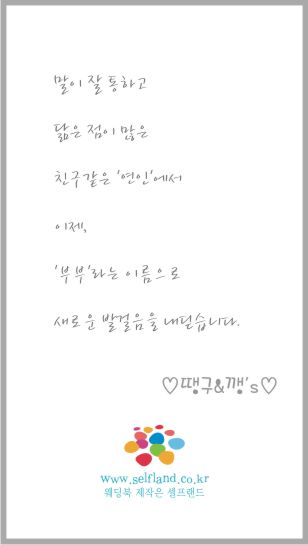 말이 잘 통하고
닮은 점이 많은
친구같은 '연인'에서
이제,
'부부'라는 이름으로
새로운 발걸음을 내딛습니다.
♡땡구&깽's♡
www.selfland.co.kr
웨딩북 제작은 셀프랜드